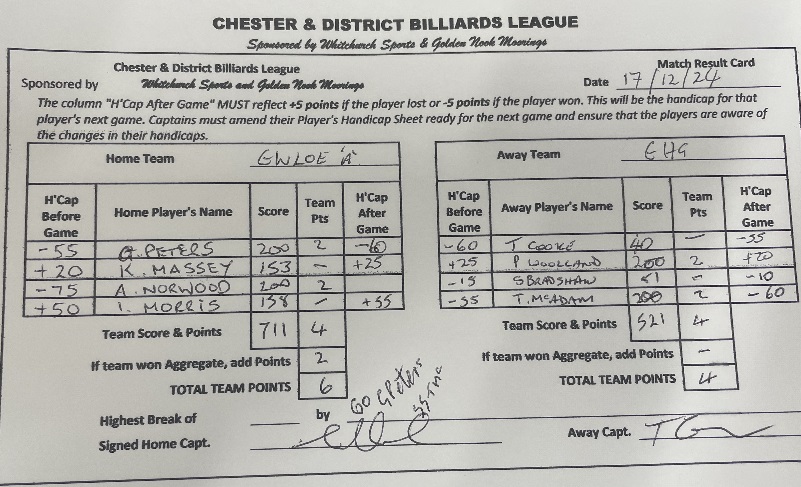 CHESTER & DISTRICT BILLIARDS LEAGUE
Sponsored by Whitchurch Sports & Golden Nook Moorings
Chester & District Billiards League
Match Result Card
Sponsored by Whitchurch Sports and Golden Nook Moorings
Date 17/12/24
The column "H'Cap After Game" MUST reflect +5 points if the player lost or -5 points if the player won. This will be the handicap for that
player's next game. Captains must amend their Player's Handicap Sheet ready for the next game and ensure that the players are aware of
the changes in their handicaps.
Home Team EWLOE 'A'
H'Cap Before Game Home Player's Name Score Team Pts H'Cap After Game
-55 G. PETERS 200 2 -60
+20 K. MASSEY 153 - +25
-75 A. NORWOOD 200 2
+50 I. MORRIS 158 - +55
Team Score & Points 711 4
If team won Aggregate, add Points 2
TOTAL TEAM POINTS 6
Away Team EHG
H'Cap Before Game Away Player's Name Score Team Pts H'Cap After Game
-60 T COOKE 40 - -55
+25 P WOOLLAND 200 2 +20
-15 S BRADSHAW 81 - -10
-55 T. McADAM 200 2 -60
Team Score & Points 521 4
If team won Aggregate, add Points -
TOTAL TEAM POINTS 4
Highest Break of by 60 G Peters
55 T Mc
Signed Home Capt.
Away Capt.